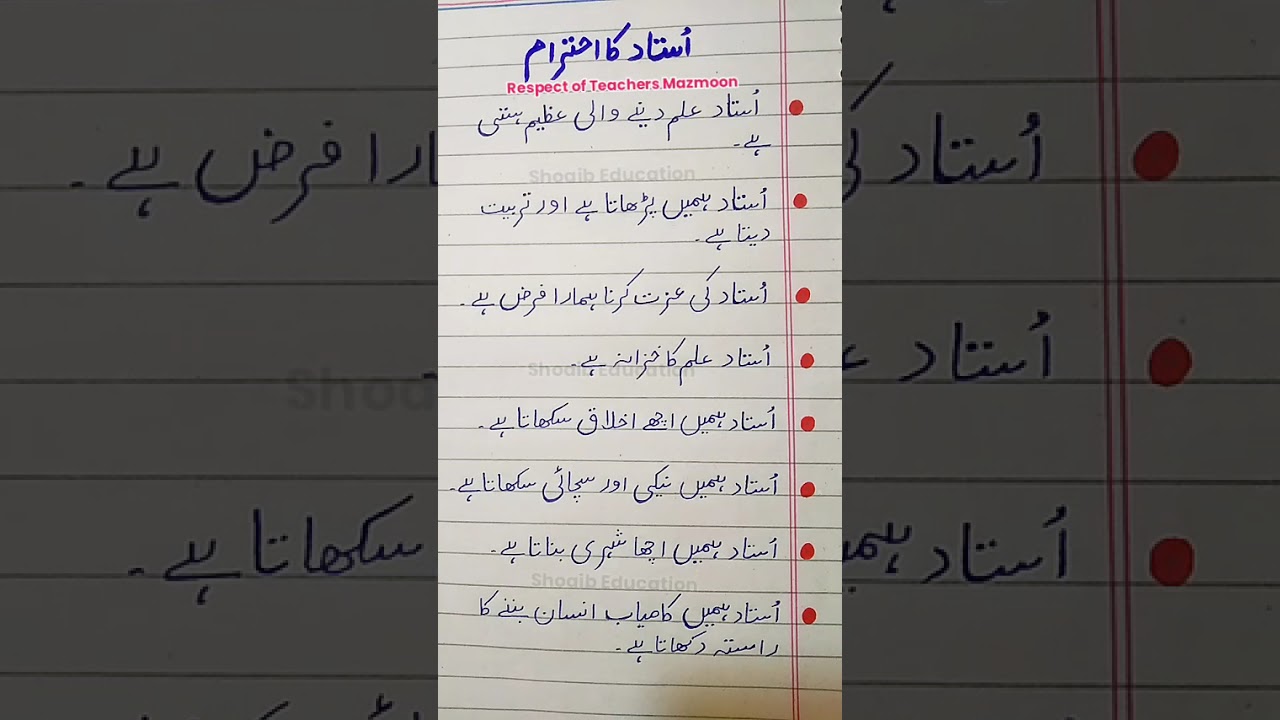 اُستاد کا احترام
Respect of Teachers Mazmoon
اُستاد علم دینے والی عظیم ہستی
ہے۔
Shoaib Education
اُستاد ہمیں پڑھاتا ہے اور تربیت
دیتا ہے۔
اُستاد کی عزت کرنا ہمارا فرض ہے۔
اُستاد علم کا خزانہ ہے۔
Shoaib Education
اُستاد ہمیں اچھے اخلاق سکھاتا ہے۔
اُستاد ہمیں نیکی اور سچائی سکھاتا ہے۔
اُستاد ہمیں اچھا شہری بناتا ہے۔
Shoaib Education
اُستاد ہمیں کامیاب انسان بننے کا
راستہ دکھاتا ہے۔